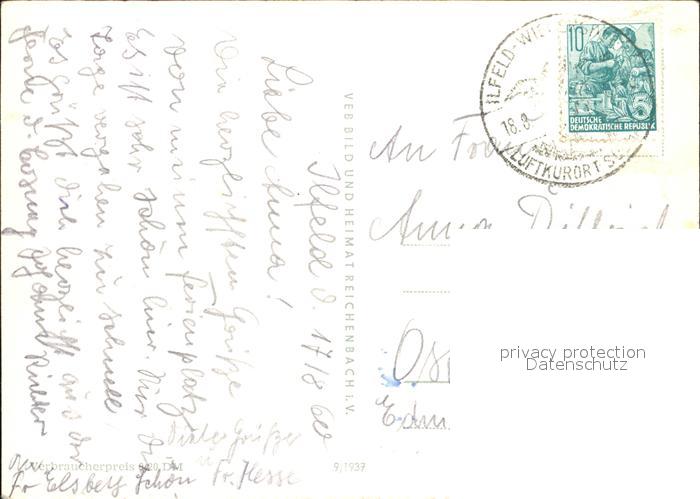 Ilfeld d. 17/8 60
Liebe Anna!
Die herzlichsten Grüße
von meinem Ferienplatz
Es ist sehr schön hier. Nur die
Tage vergehen zu schnell,
Es grüßt dich herzlichst aus der
Johanne Richter
Viele Grüße
Fr Elsberg Schön Fr. Hesse
Verbraucherpreis 0,20 DM
9/1937
VEB BILD UND HEIMAT REICHENBACH i. V.
ILFELD-WIE
18.8.
LUFTKURORT
10
DEUTSCHE
DEMOKRATISCHE REPUBLIK
5
An Frau
Anna
privacy protection
Datenschutz